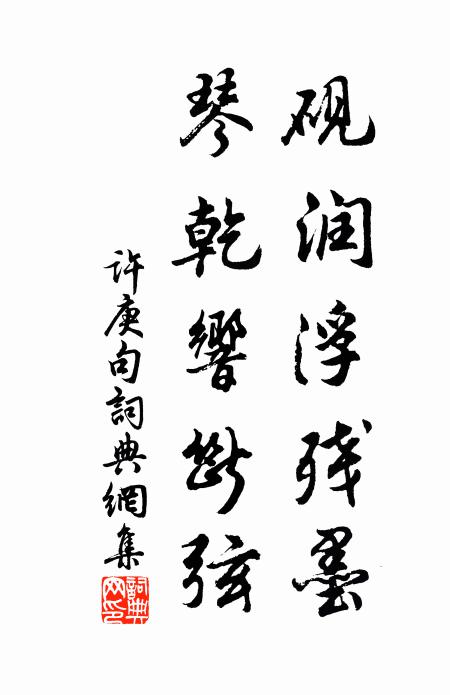 砚润浮残墨
琴乾響断弦
許庚句詞典網集
詞典網印